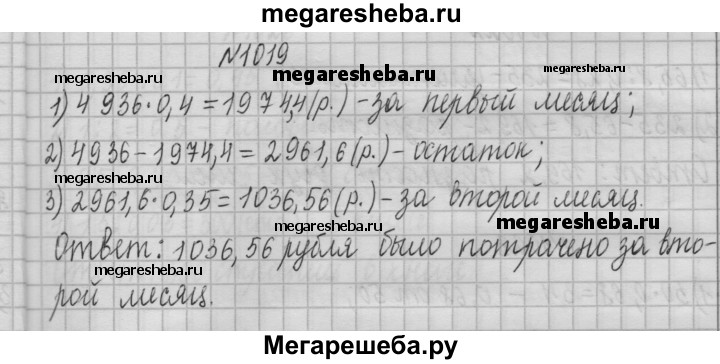 megaresheba.ru
№1019
megaresheba.ru megaresheba.ru
1) 4 936·0,4=1974,4(р.)-за первый месяц;
2) 4936-1974,4=2961,6(р.)-остаток;
megaresheba.ru
3) 2961,6·0,35=1036,56(р.)-за второй месяц.
megaresheba.ru
Ответ: 1036,56 рубля было потрачено за вто-
megaresheba.ru
рой месяц.
Мегарешеба.ру